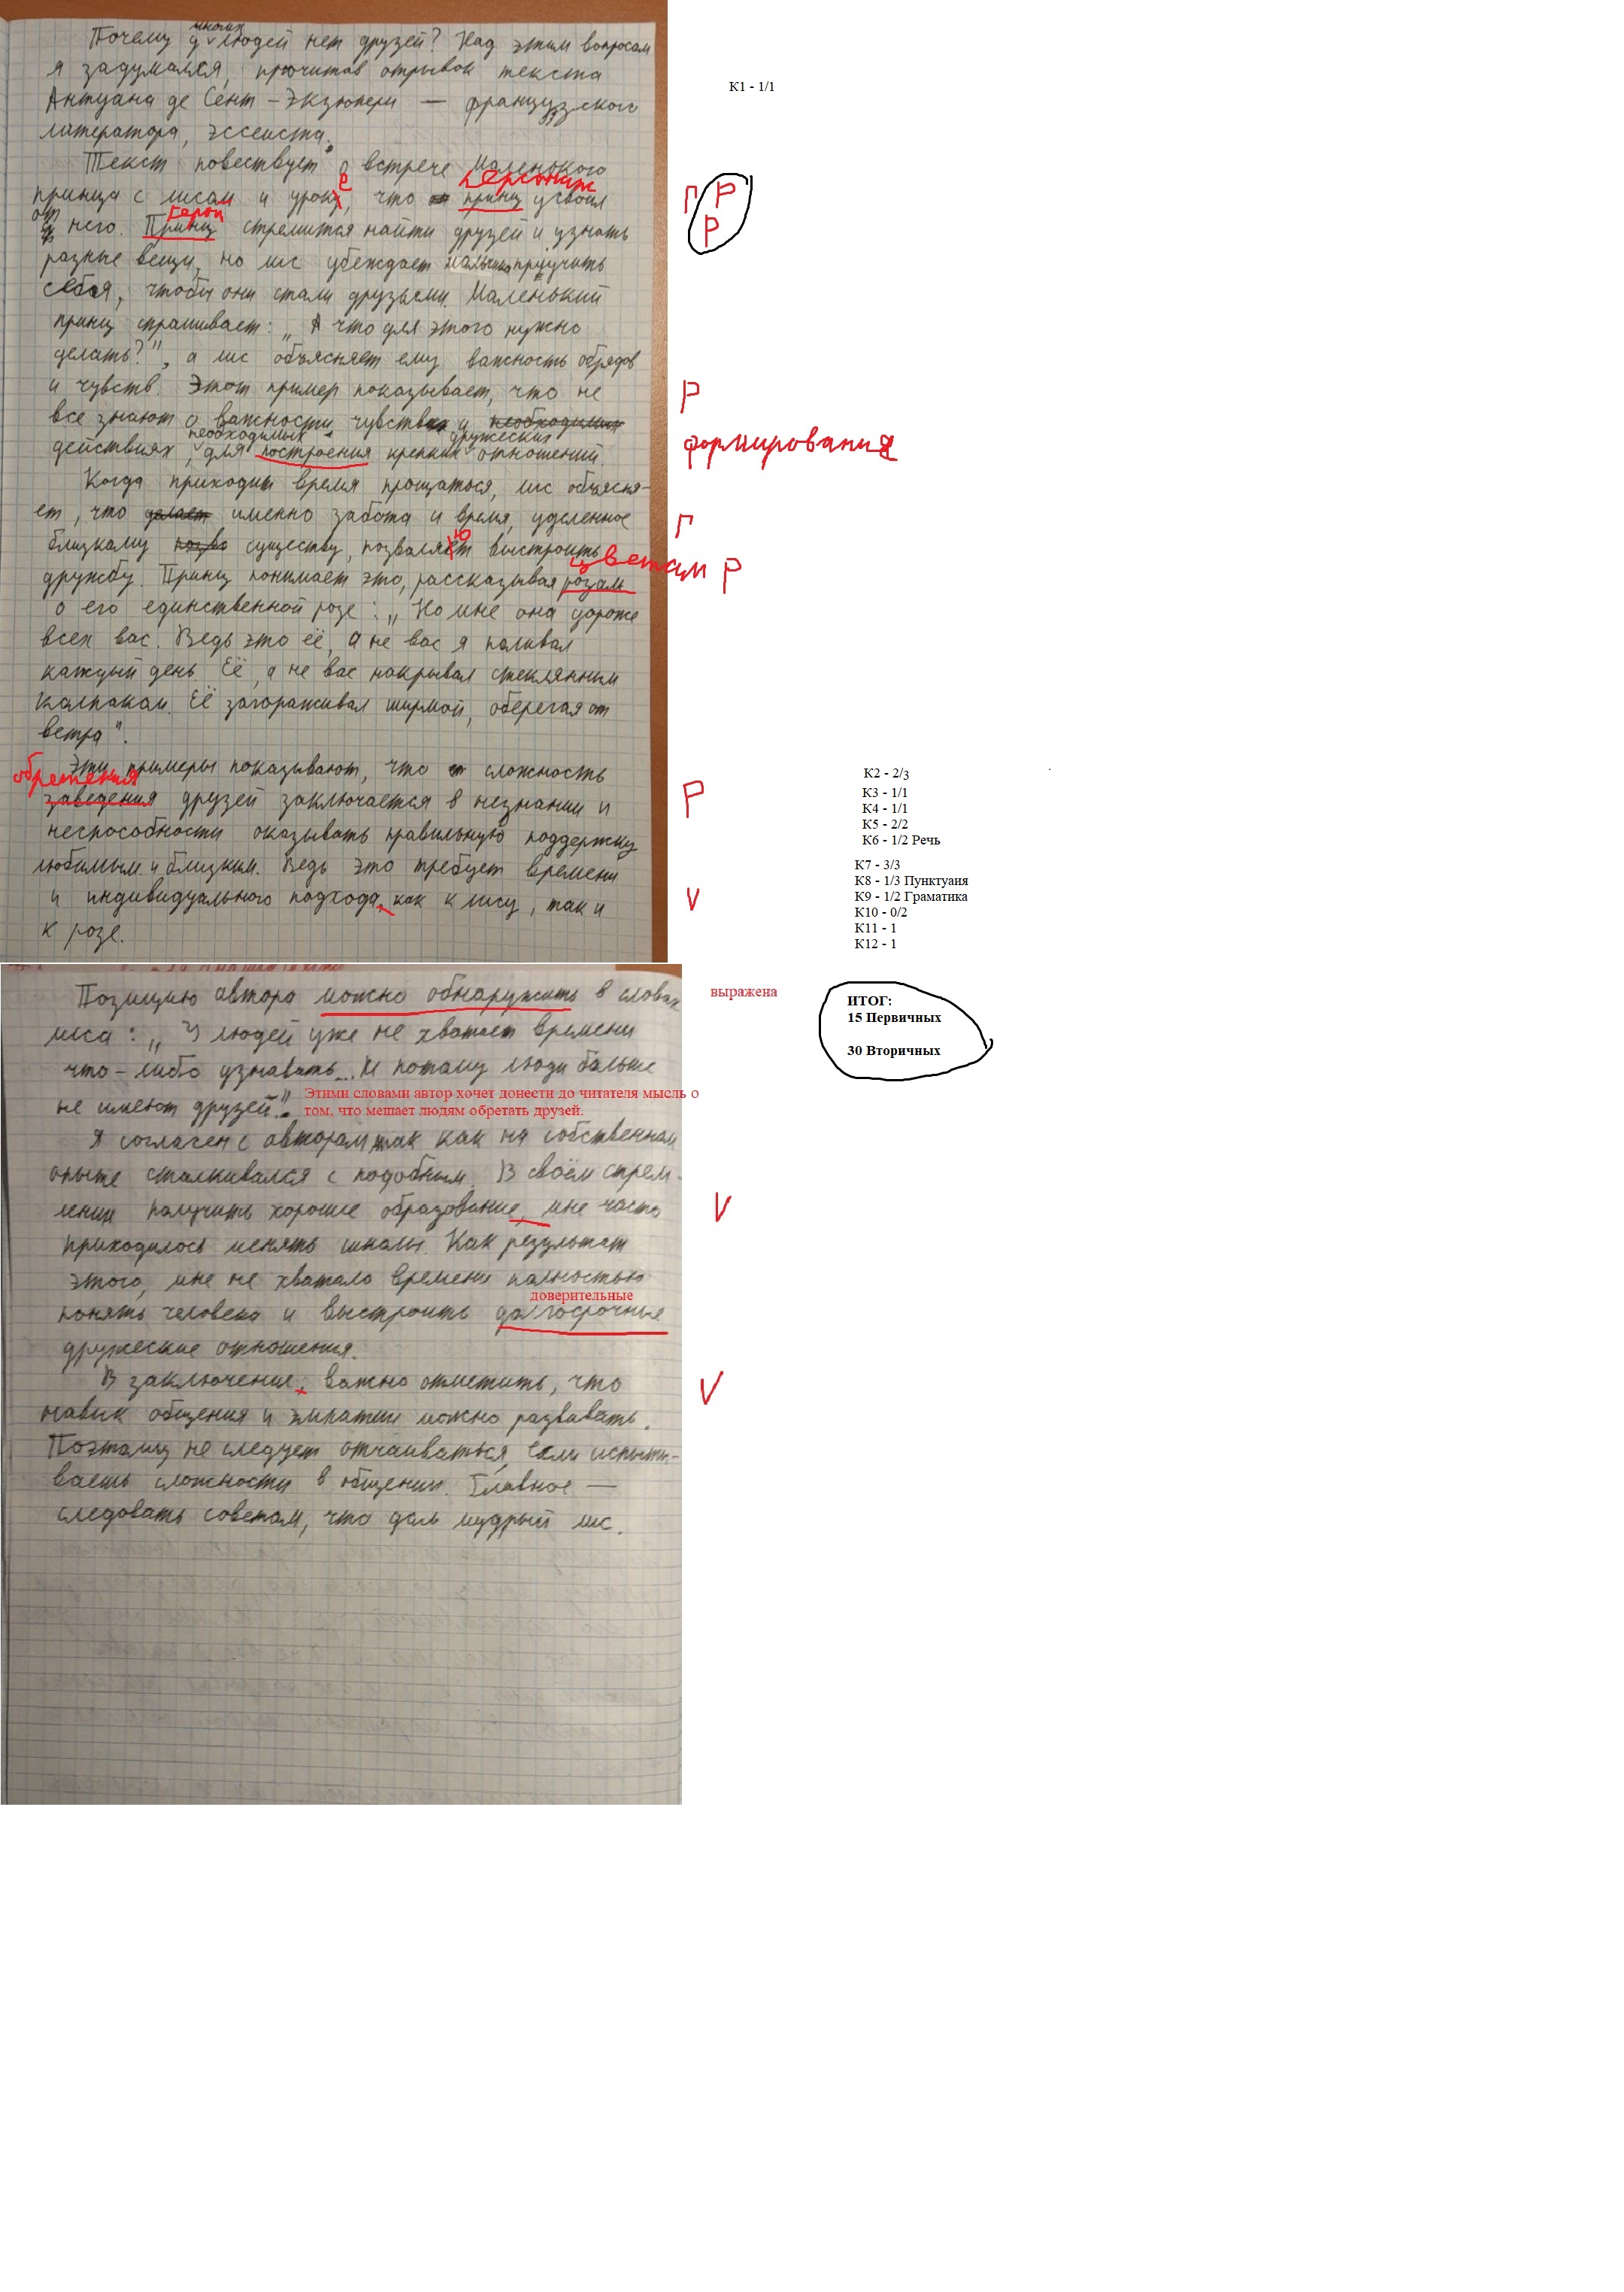 Почему у многих людей нет друзей? Над этим вопросом
я задумался, прочитав отрывок текста
Антуана де Сент-Экзюпери — французского
литератора, эссеиста.
Текст повествует о встрече Маленького
персонаж
принца с лисом и уроке, что принц усвоил
Г Р
герой
от него. Принц стремится найти друзей и узнать
Р
разные вещи, но лис убеждает приручить
себя, чтобы они стали друзьями. Маленький
принц спрашивает: „А что для этого нужно
делать?", а лис объясняет ему важность обрядов
и чувств. Этот пример показывает, что не
Р
все знают о важности чувств и необходимых
необходимых дружеских
действиях, для построения крепких отношений.
формирования
Когда приходит время прощаться, лис объясня-
ет, что делает именно забота и время, уделенное
Г
близкому существу, позволяют выстроить
цветам Р
дружбу. Принц понимает это, рассказывая розам
о его единственной розе: „Но мне она дороже
всех вас. Ведь это её, а не вас я поливал
каждый день. Её, а не вас накрывал стеклянным
колпаком. Её загораживал ширмой, оберегая от
ветра".
Эти примеры показывают, что сложность
обретения
заведения друзей заключается в незнании и
Р
неспособности оказывать правильную поддержку
любимым и близким. Ведь это требует времени
и индивидуального подхода, как к лису, так и
V
к розе.
К1 - 1/1
К2 - 2/3
К3 - 1/1
К4 - 1/1
К5 - 2/2
К6 - 1/2 Речь
К7 - 3/3
К8 - 1/3 Пунктуаия
К9 - 1/2 Граматика
К10 - 0/2
К11 - 1
К12 - 1
ИТОГ:
15 Первичных
30 Вторичных
Позицию автора можно обнаружить в словах
выражена
лиса: „У людей уже не хватает времени
что-либо узнавать... И потому люди больше
не имеют друзей".
Этими словами автор хочет донести до читателя мысль о
том, что мешает людям обретать друзей.
Я согласен с автором так как на собственном
опыте сталкивался с подобным. В своём стрем-
лении получить хорошее образование, мне часто
V
приходилось менять школы. Как результат
этого, мне не хватало времени полностью
доверительные
понять человека и выстроить долгосрочные
дружеские отношения.
В заключение, важно отметить, что
V
навык общения и эмпатии можно развивать.
Поэтому не следует отчаиваться, если испыты-
ваешь сложности в общении. Главное —
следовать советам, что дал мудрый лис.